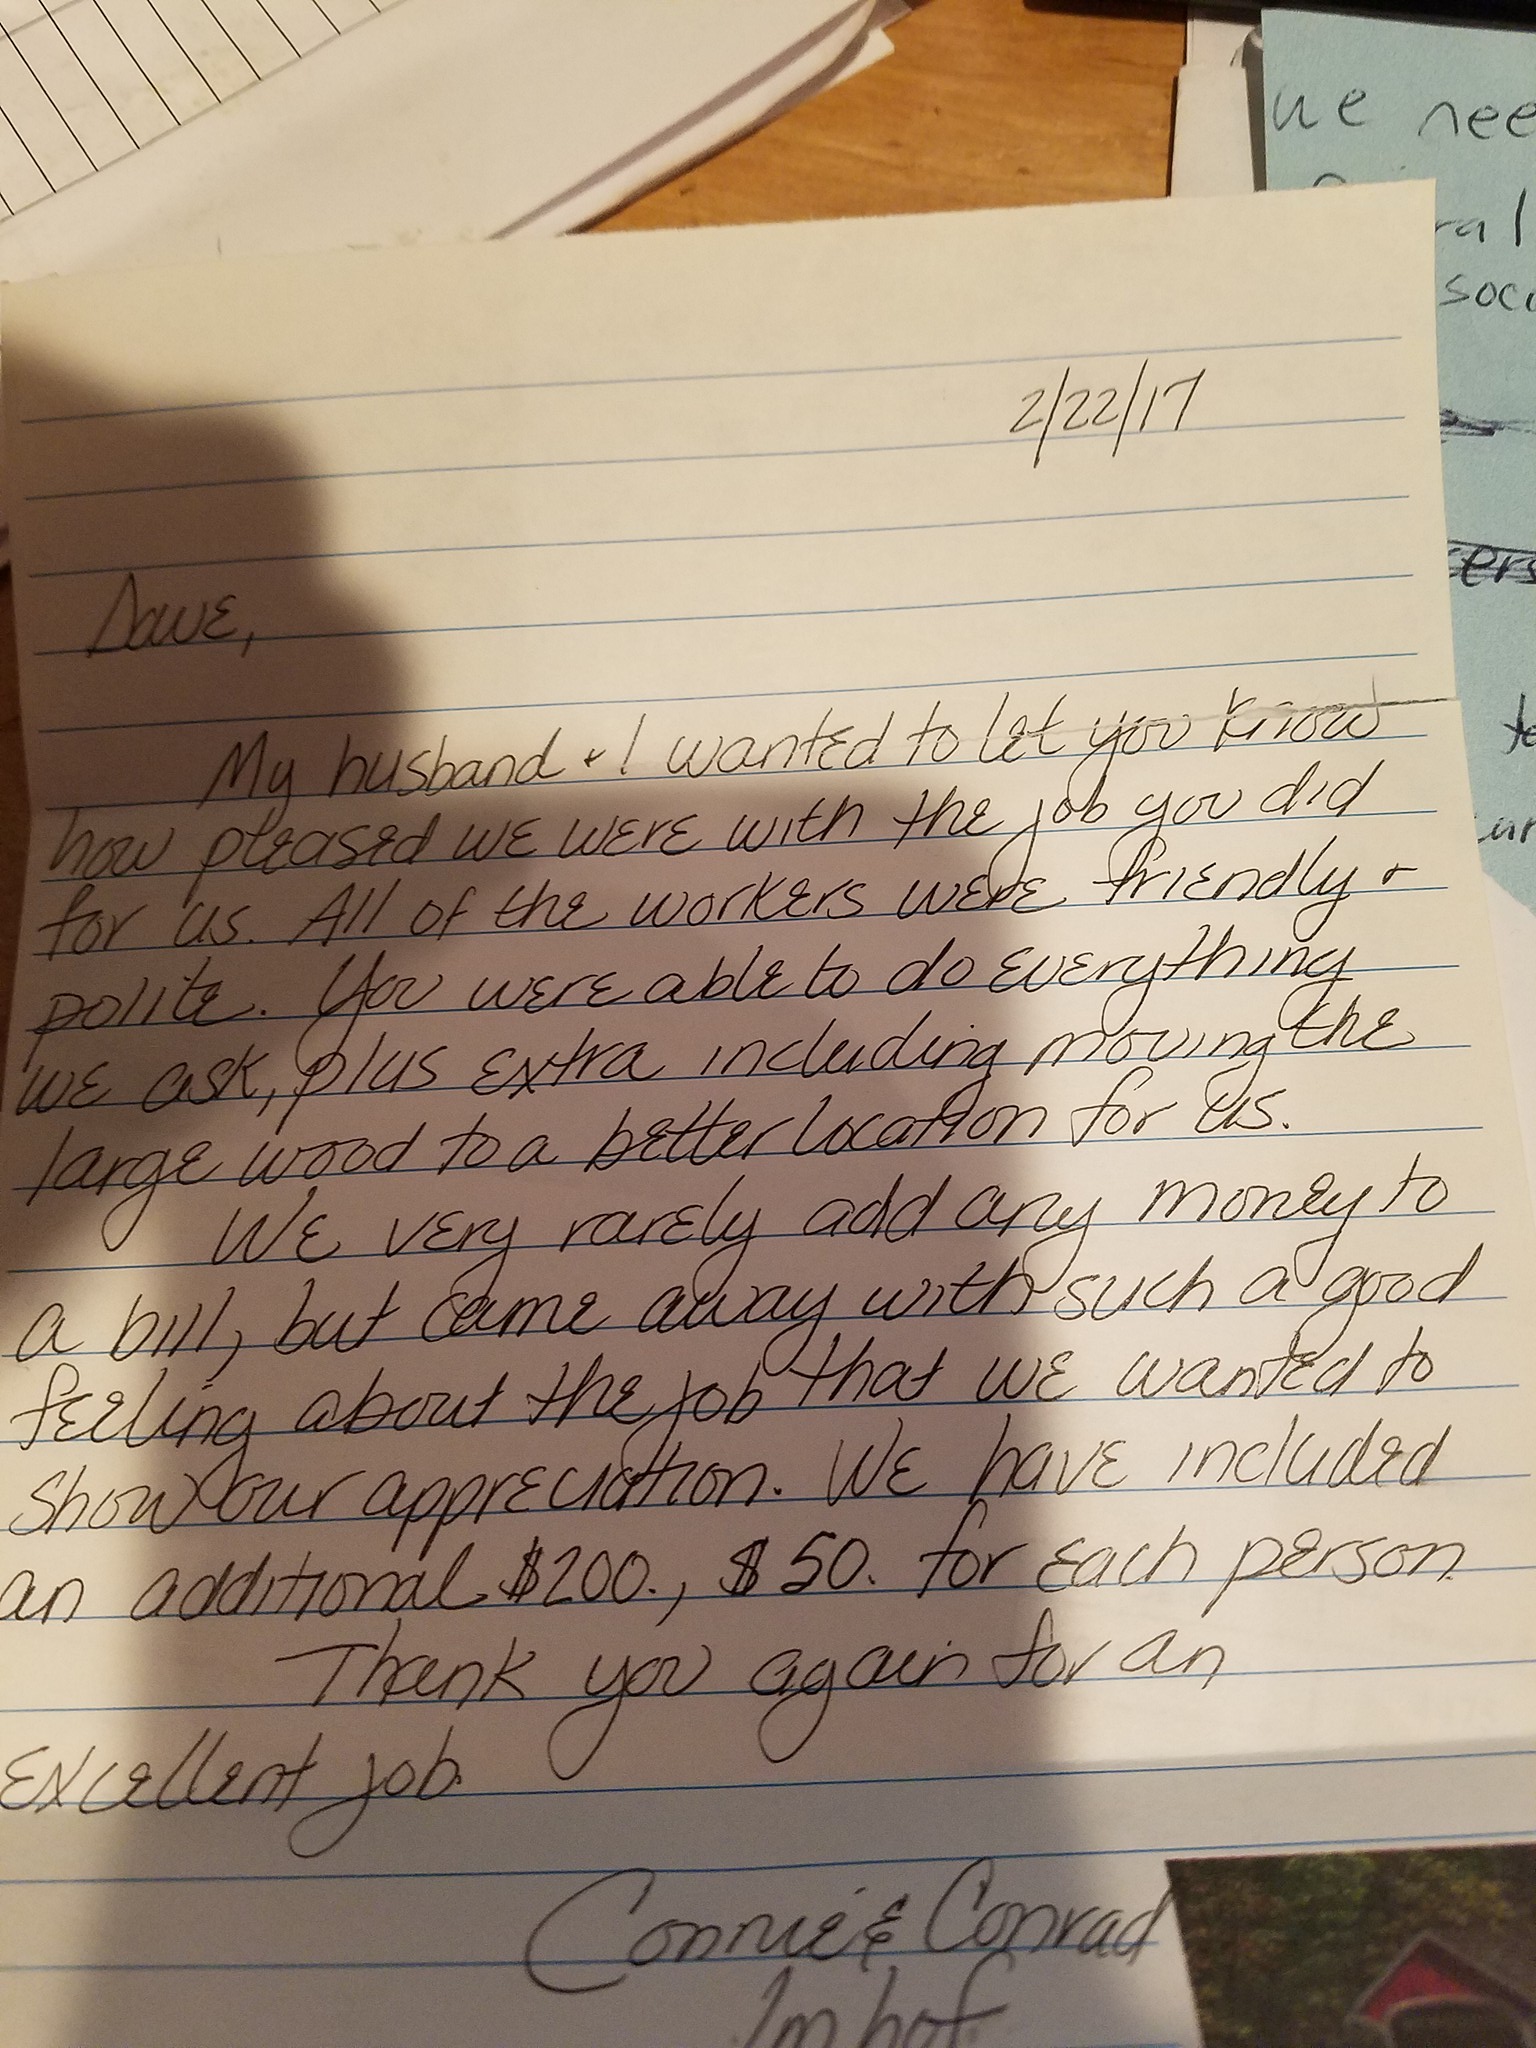 we nee
ral
soci
ers
te
cur
2/22/17
Dave,
My husband + I wanted to let you know
how pleased we were with the job you did
for us. All of the workers were friendly +
polite. You were able to do everything
we ask, plus extra including moving the
large wood to a better location for us.
We very rarely add any money to
a bill, but came away with such a good
feeling about the job that we wanted to
show our appreciation. We have included
an additional $200., $50. for each person.
Thank you again for an
excellent job.
Connie & Conrad
Imhof